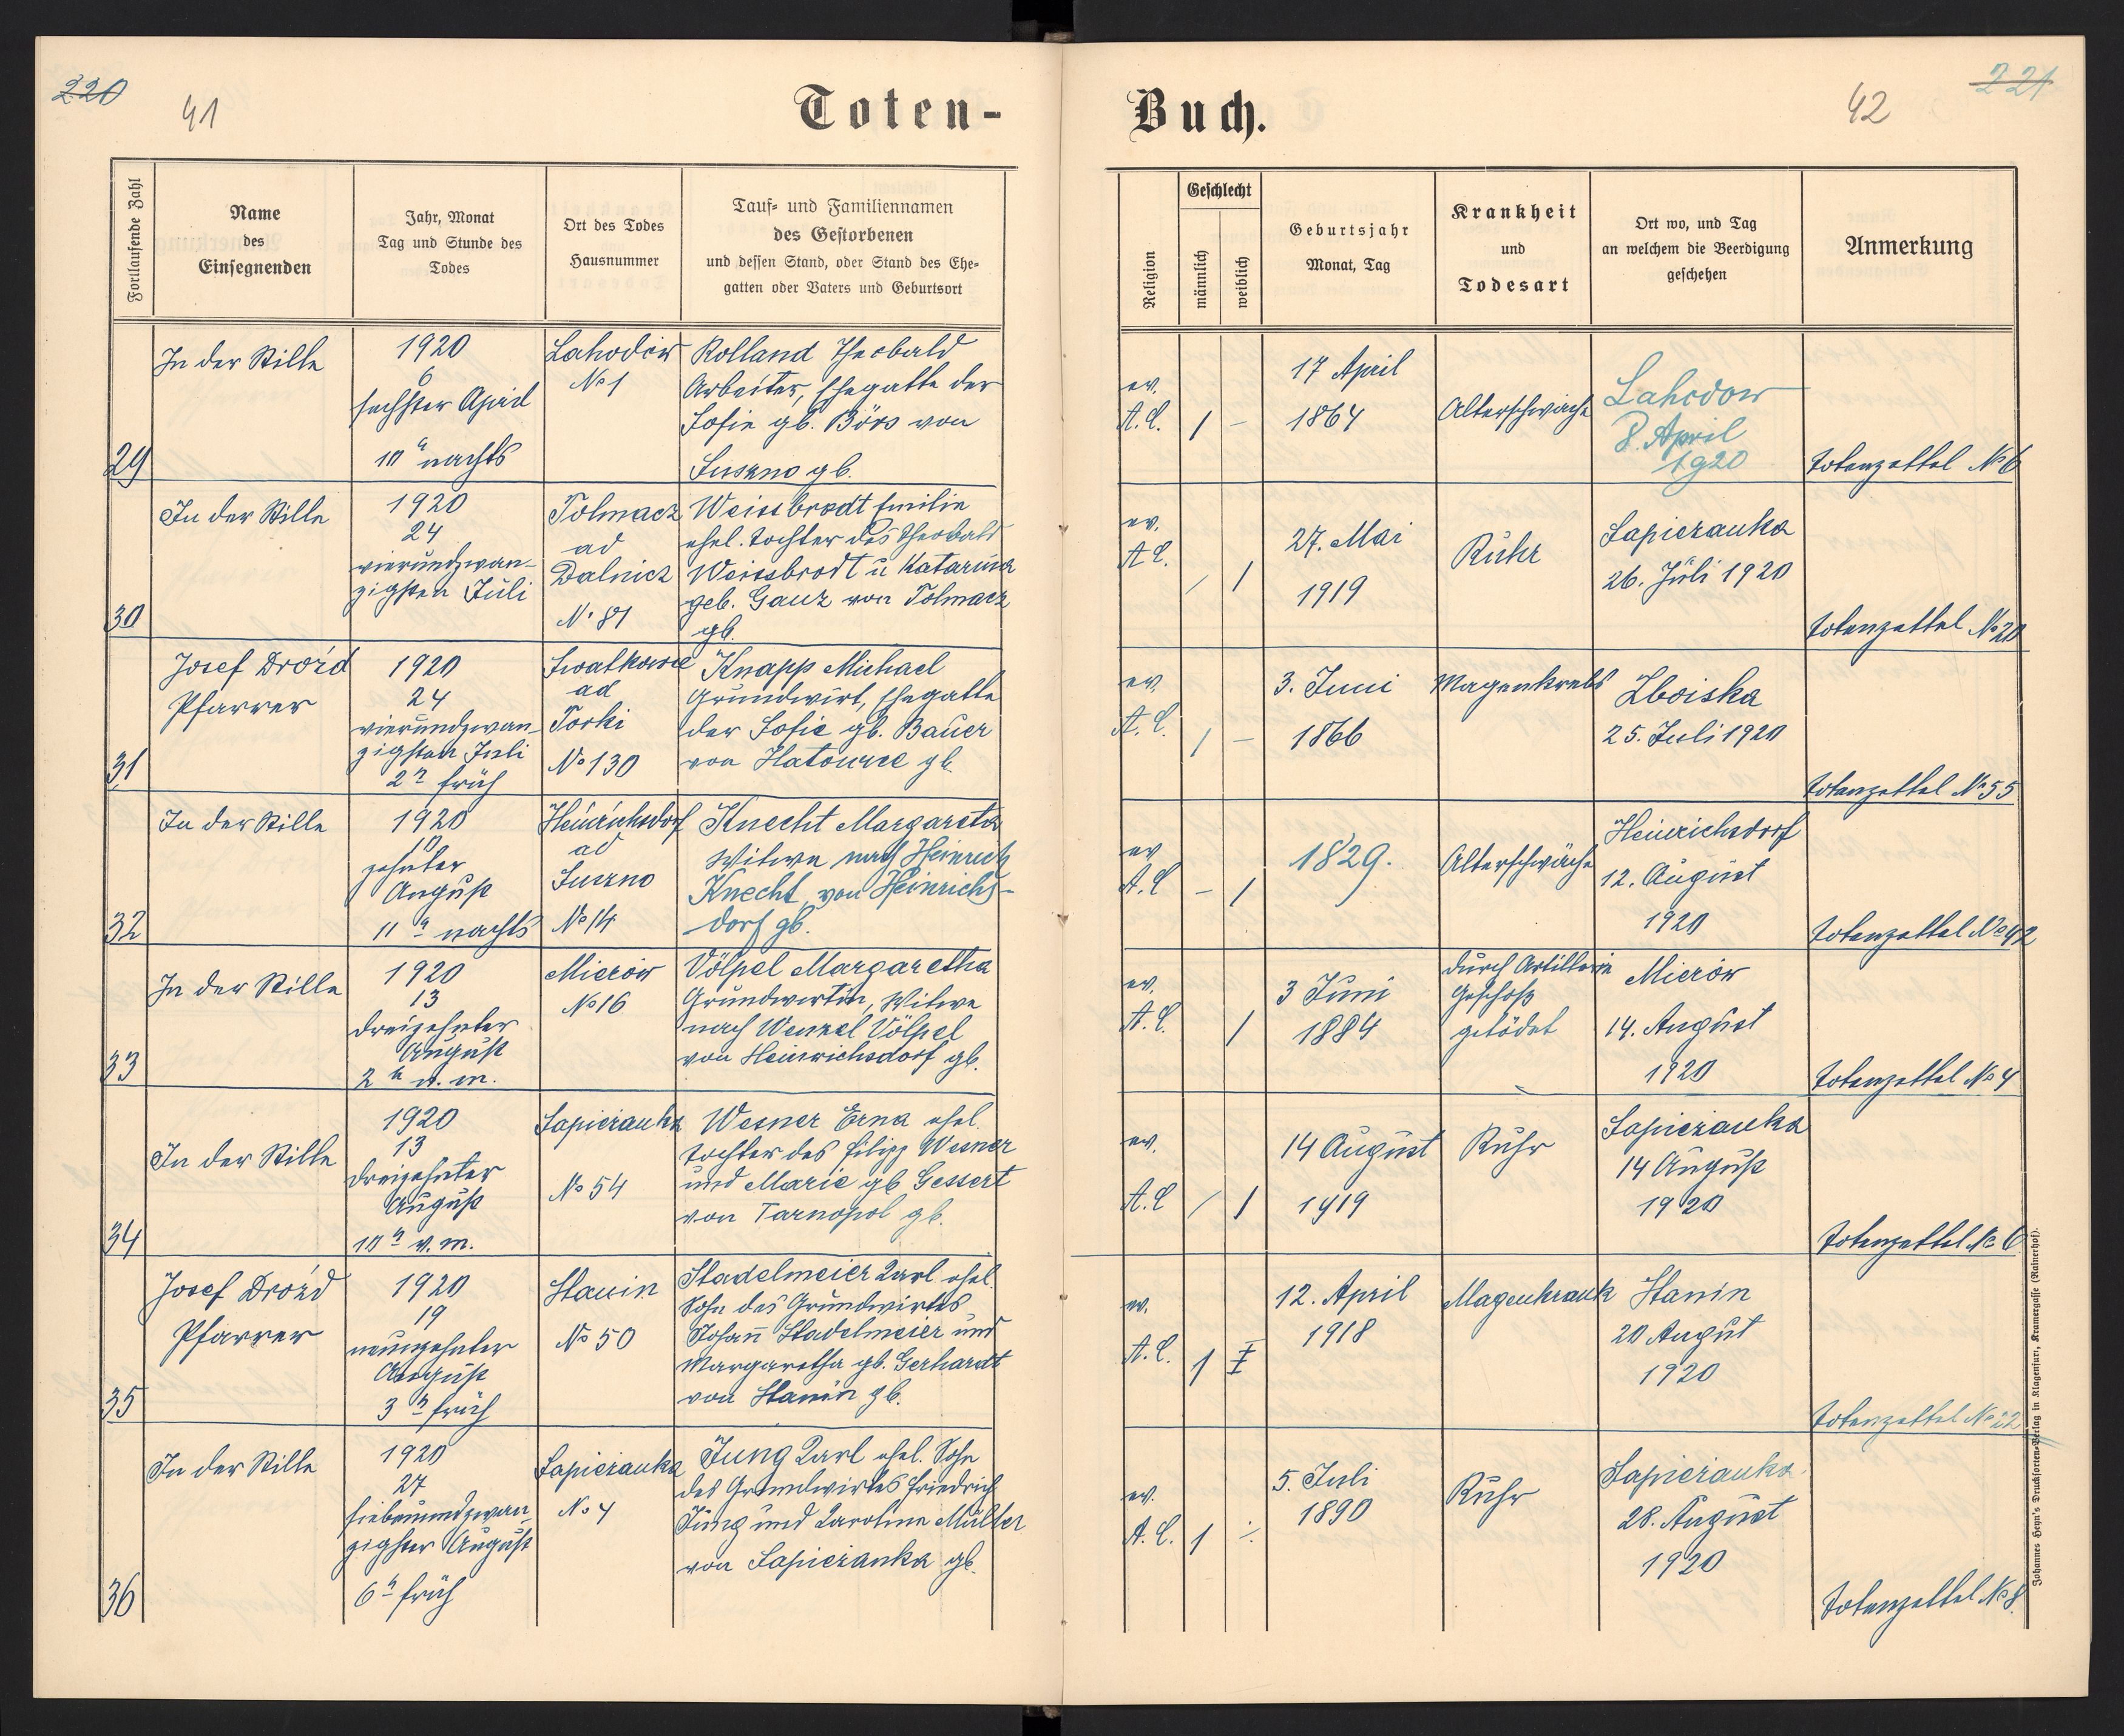 220
41
Toten-
Fortlaufende Zahl
Name
des
Einsegnenden
Jahr, Monat
Tag und Stunde des
Todes
Ort des Todes
Hausnummer
Tauf- und Familiennamen
des Gestorbenen
und dessen Stand, oder Stand des Ehe-
gatten oder Vaters und Geburtsort
29
In der Stille
1920
6
sechster April
10 h nachts
Lahodów
No 1
Rolland Theobald
Arbeiter, Ehegatte der
Sofie gb. Börs von
Suszno gb.
30
In der Stille
1920
24
vierundzwan-
zigsten Juli
Tolmacz
ad
Dalnicz
N. 81
Weissbrodt Emilie
ehel. Tochter des Theobald
Weissbrodt u Katarina
geb. Ganz von Tolmacz
gb.
31
Josef Drozd
Pfarrer
1920
24
vierundzwan-
zigsten Juli
2 h früh
ad
Torki
No 130
Knapp Michael
Grundwirt, Ehegatte
der Sofie gb. Bauer
von gb.
32
In der Stille
1920
10
zehnter
August
11 h nachts
Heinrichsdorf
ad
Suszno
No 14
Knecht Margareta
Witwe nach Heinrich
Knecht, von Heinrichs-
dorf gb.
33
In der Stille
1920
13
dreizehnter
August
2 h n. m.
Mierów
No 16
Völpel Margaretha
Grundwirtin, Witwe
nach Wenzel Völpel
von Heinrichsdorf gb.
34
In der Stille
1920
13
dreizehnter
August
10 h v. m.
Sapieżanka
No 54
Wesner Erna ehel.
Tochter des Filipp Wesner
und Marie gb Gessert
von Tarnopol gb.
35
Josef Drozd
Pfarrer
1920
19
neunzehnter
August
3 h früh
Stanin
No 50
Stadelmeier Karl ehel.
Sohn des Grundwirtes
Johann Stadelmeier und
Margaretha gb. Gerhardt
von Stanin gb.
36
In der Stille
1920
27
siebenundzwan-
zigster August
6 h früh
Sapieżanka
No 4
Jung Karl ehel. Sohn
des Grundwirtes Friedrich
Jung und Karoline Müller
von Sapieżanka gb.
Buch.
42
221
Religion
Geschlecht
männlich
weiblich
Geburtsjahr
Monat, Tag
Krankheit
und
Todesart
Ort wo, und Tag
an welchem die Beerdigung
geschehen
Anmerkung
ev.
A.C.
1
-
17 April
1864
Alterschwäche
Lahodow
8. April
1920
Totenzettel No 6
ev.
A.C.
/
1
27. Mai
1919
Ruhr
Sapieżanka
26. Juli 1920
Totenzettel No 20
ev.
A.C.
1
-
3. Juni
1866
Magenkrebs
Zboiska
25. Juli 1920
Totenzettel No 55
ev
A.C
-
1
1829.
Alterschwäche
Heinrichsdorf
12. August
1920
Totenzettel No 42
ev.
A.C.
1
3 Juni
1884
durch Artillerie
Geschoß
getödet
Mierów
14. August
1920
Totenzettel No 4
ev.
A.C
/
1
14 August
1919
Ruhr
Sapieżanka
14 August
1920
Totenzettel No 6
ev.
A.C.
1
12. April
1918
Magenkrank
Stanin
20 August
1920
Totenzettel No 22
ev.
A.C.
1
5. Juli
1890
Ruhr
Sapieżanka
28. August
1920
Totenzettel No 8.
Johannes Heyn's Drucksorten-Verlag in Klagenfurt, Kramergasse (Rainerhof).